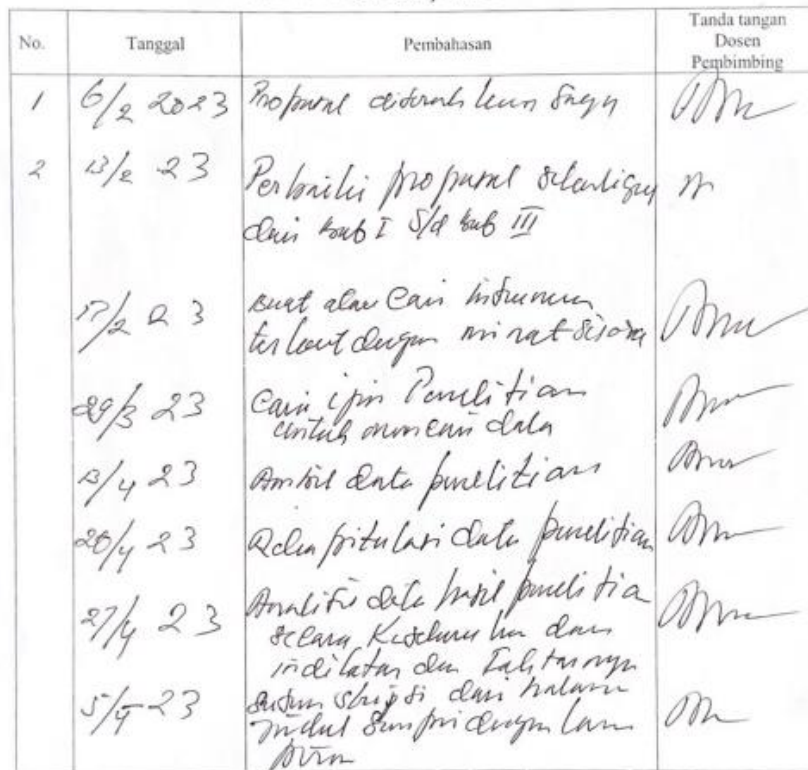 No. Tanggal Pembahasan Tanda tangan Dosen Pembimbing
1 6/2 2023 Proposal diserahkan
2 13/2 23 Perbaiki proposal sekaligus
dari bab I s/d bab III
17/2 23 Buat atau Cari instrumen
terkait dengan minat siswa
29/3 23 Cari izin Penelitian
untuk mencari data
13/4 23 Ambil data penelitian
26/4 23 Rekapitulasi data penelitian
27/4 23 Analisis data hasil penelitian
secara Keseluruhan dan
indikator dan Faktornya
23 Susun skripsi dari halaman
Judul Sampai dengan lam
piran